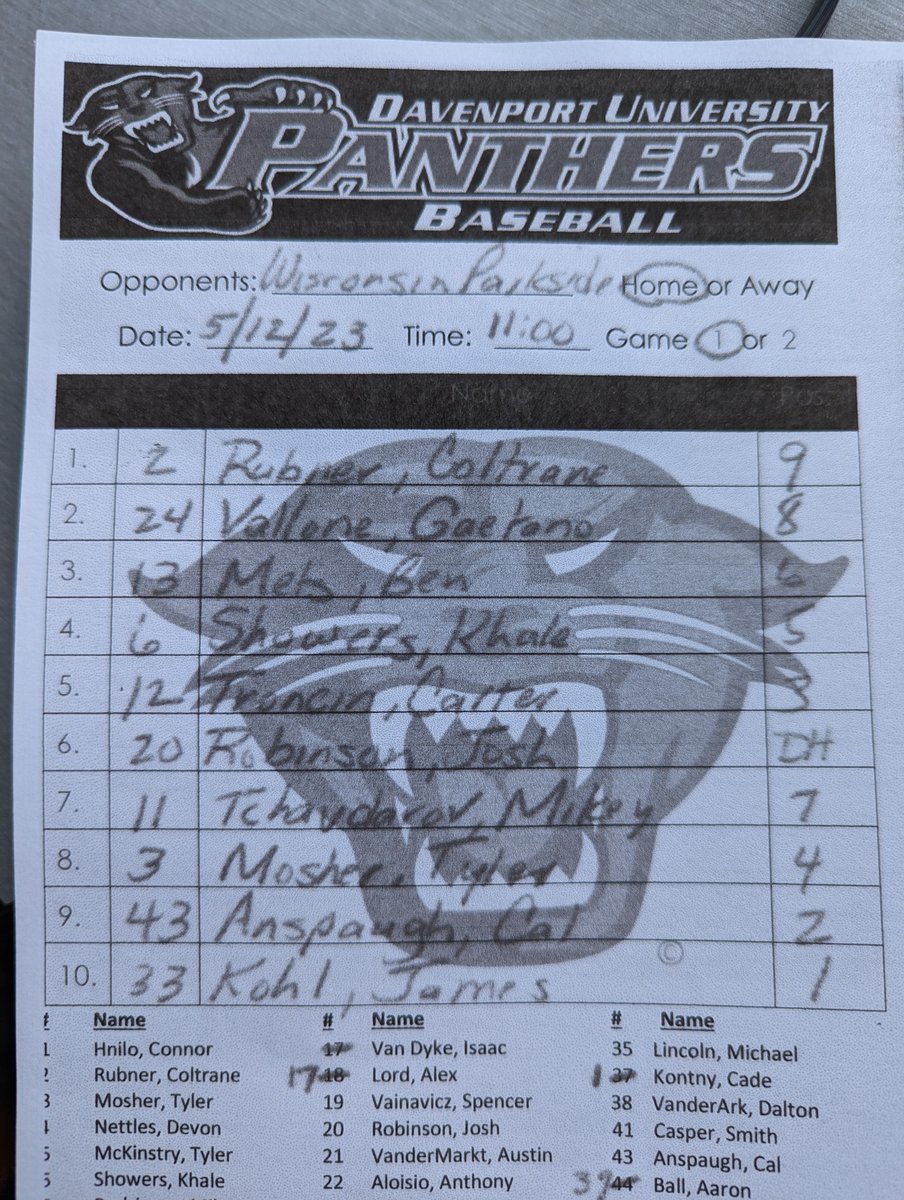 DAVENPORT UNIVERSITY
PANTHERS
BASEBALL
Opponents: Wisconsin Parkside Home or Away
Date: 5/12/23 Time: 11:00 Game 1 or 2
Name Pos.
1. 2 Rubner, Coltrane 9
2. 24 Vallone, Gaetano 8
3. 13 Mets, Ben 6
4. 6 Showers, Khale 5
5. 12 Troncin, Carter 3
6. 20 Robinson, Josh DH
7. 11 Tchavdarov, Mikey 7
8. 3 Mosher, Tyler 4
9. 43 Anspaugh, Cal 2
©
10. 33 Kohl, James 1
# Name # Name # Name
1 Hnilo, Connor 17 Van Dyke, Isaac 35 Lincoln, Michael
2 Rubner, Coltrane 17 18 Lord, Alex 1 37 Kontny, Cade
3 Mosher, Tyler 19 Vainavicz, Spencer 38 VanderArk, Dalton
4 Nettles, Devon 20 Robinson, Josh 41 Casper, Smith
5 McKinstry, Tyler 21 VanderMarkt, Austin 43 Anspaugh, Cal
Showers, Khale 22 Aloisio, Anthony 39 44 Ball, Aaron